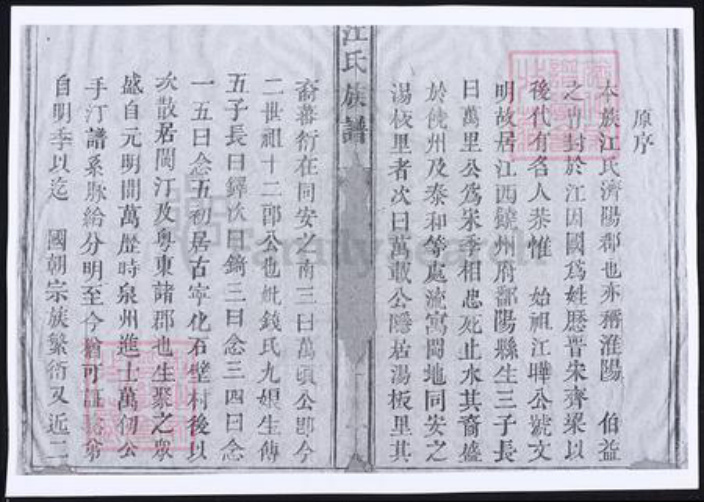 江氏族譜
原序
本族江氏濟陽郡也亦稱淮陽 伯益
之冑封於江因國爲姓歷晉宋齊梁以
後代有名人恭惟 始祖江曄公號文
明故居江西饒州府鄱陽縣生三子長
曰萬里公爲宋季相忠死止水其裔盛
於饒州及泰和等處流寓閩地同安之
湯板里者次曰萬載公隱居湯板里其
裔蕃衍在同安之南三曰萬頃公卽今
二世祖十二郎公也妣錢氏九娘生傳
五子長曰鐸次曰鏑三曰念三四曰念
一五曰念五初居古寧化石壁村後以
次散居閩汀及粵東諸郡也生聚之衆
盛自元明間萬歷時泉州進士萬仞公
手汀譜系脈絡分明至今猶可
自明季以迄 國朝宗族繁衍又近二
FamilySearch